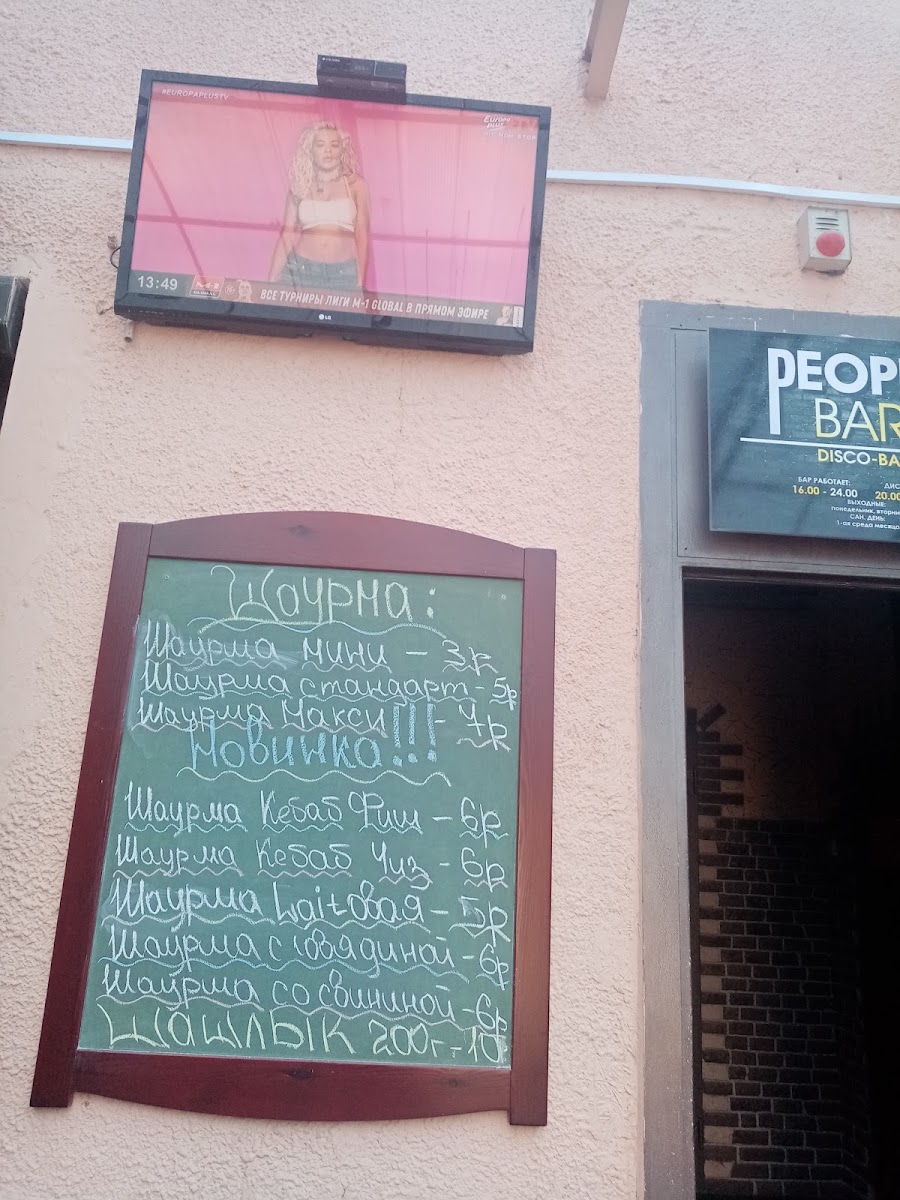 #EUROPAPLUSTV
Europa
plus
13:49
ВСЕ ТУРНИРЫ ЛИГИ M-1 GLOBAL В ПРЯМОМ ЭФИРЕ
LG
PEOP
BAR
DISCO-BA
БАР РАБОТАЕТ:
ДИС
16.00 - 24.00
20.00
ВЫХОДНЫЕ:
понедельник, вторни
САН. ДЕНЬ:
1-ая среда месяца
Шаурма:
Шаурма мини - 3р
Шаурма стандарт - 5р
Шаурма Макси - 7р
Новинка!!!
Шаурма Кебаб Фиш - 6р
Шаурма Кебаб Чиз - 6р
Шаурма Laitовая - 5р
Шаурма с говядиной - 6р
Шаурма со свининой - 6р
ШАШЛЫК 200г.-10р